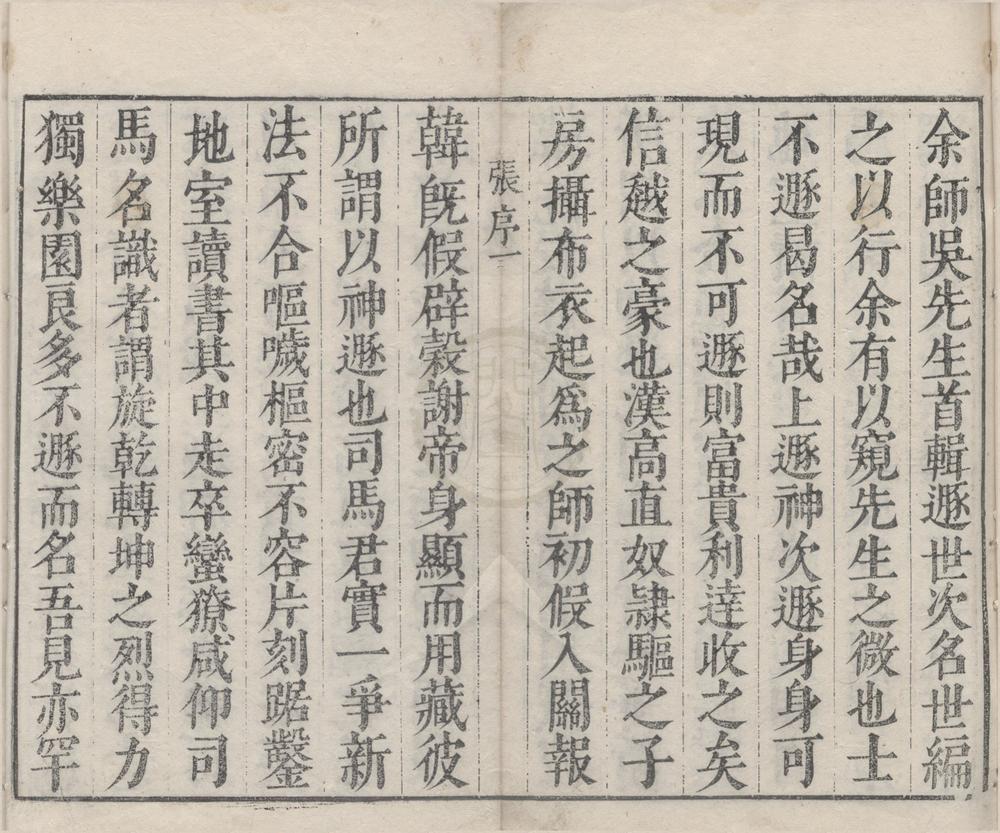 余師吳先生首輯遯世次名世編
之以行余有以窺先生之微也士
不遯曷名哉上遯神次遯身身可
現而不可遯則富貴利達收之矣
信越之豪也漢高直奴隷驅之子
房攝布衣起爲之師初假入關報
張序一
韓旣假辟穀謝帝身顯而用藏彼
所謂以神遯也司馬君實一爭新
法不合嘔噦樞密不容片刻踞鑿
地室讀書其中走卒蠻獠咸仰司
馬名識者謂旋乾轉坤之烈得力
獨樂園良多不遯而名吾見亦罕